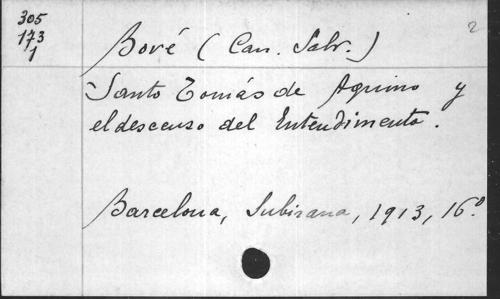 305
173
1
2
Bové (Can. Salv.)
Santo Tomás de Aquino y
el descenso del Entendimento.
Barcelona, Subirana, 1913, 16º